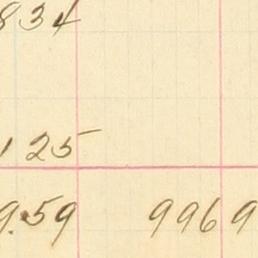 834
125
9.59 996 9